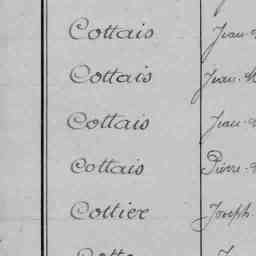 Cottais Jean
Cottais Jean
Cottais Jean
Cottais Pierre
Cottier Joseph